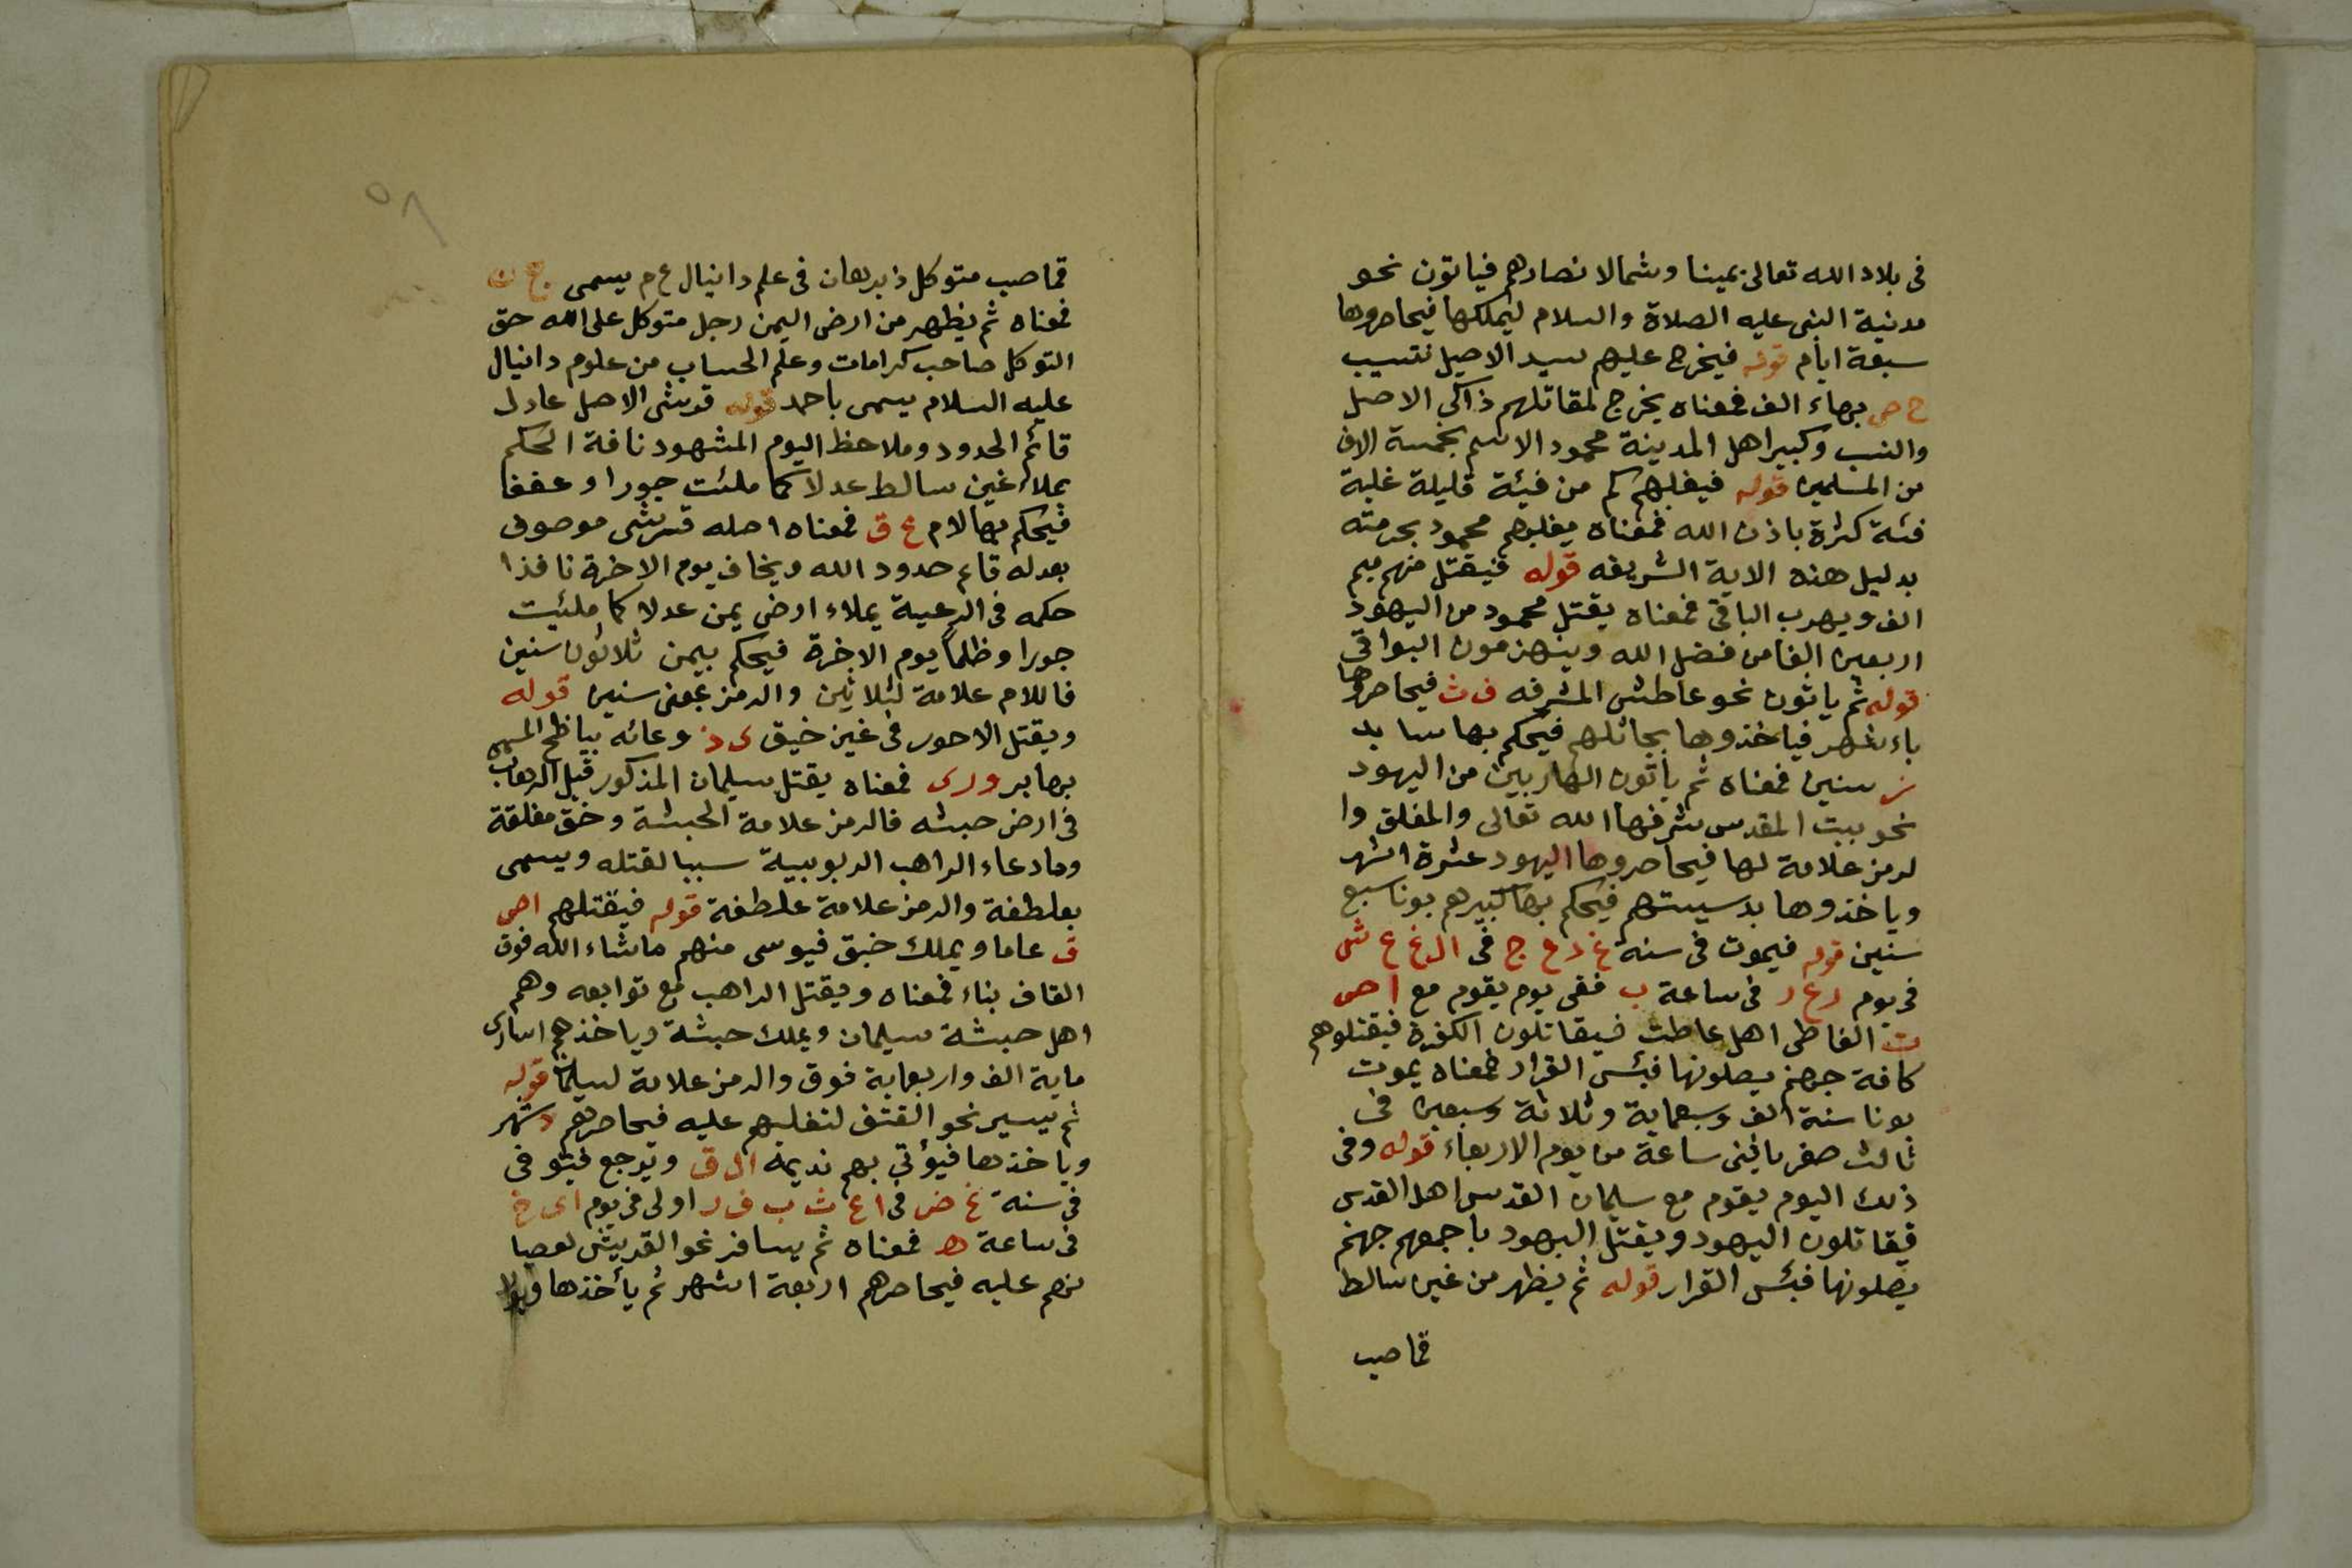 فى بلاد الله تعالى يمينا وشمالا نصارهم فياتون نحو
مدنية النبى عليه الصلاة والسلام ليملكها فيحاصروها
سبعة ايام قوله فيخرج عليهم سيد الاصيل نتسيب
ح ص بهاء الف فمعناه يخرج لمقاتلهم ذاكى الاصل
والنسب وكبير اهل المدينة محمود الاسم بخمسة الاف
من المسلمين قوله فيغلبهم كم من فيئة قليلة غلبة
فئة كثرة باذن الله فمعناه يغلبهم محمود بحرمته
بدليل هذه الاية الشريفه قوله فيقتل منهم ميم
الف ويهرب الباقى فمعناه يقتل محمود من اليهود
اربعين الفا من فضل الله وينهزمون البواقى
قوله ثم ياتون نحو عاطش المشرفه ف ث فيحاصروها
باء شهر فياخذوها بجائلهم فيحكم بها سا بد
ز سنين فمعناه ثم ياتون الهاربين من اليهود
نحو بيت المقدس شرفها الله تعالى والمغلق وا
لرمز علامة لها فيحاصروها اليهود عشرة اشهر
وياخذوها بدسيستهم فيحكم بها كبيرهم يونا سبع
سنين قوله فيموت فى سنة غ ذ ع ج فى ال غ ع ش
فى يوم ر ع ر فى ساعة ب ففى يوم يقوم مع ا ص
ت الفاطى اهل عاطت فيقاتلون الكفرة فيقتلوهم
كافة جهنم يصلونها فبئس القرار فمعناه يموت
يونا سنة الف وسبعماية وثلاثة وسبعين فى
ثالث صفر باثنى ساعة من يوم الاربعاء قوله وفى
ذلك اليوم يقوم مع سليمان القدس اهل القدس
فيقاتلون اليهود ويقتل اليهود باجمعهم جهنم
يصلونها فبئس القرار قوله ثم يظهر من غين سالط
قماصب
قماصب متوكل ذ برهان فى علم دانيال ع م يسمى ج ع ن
فمعناه ثم يظهر من ارض اليمن رجل متوكل على الله حق
التوكل صاحب كرامات وعلم الحساب من علوم دانيال
عليه السلام يسمى باحمد قوله قويشى الاصل عادل
قائم الحدود وملاحظ اليوم المشهود نافة الحكم
يملاء غين سالط عدلا كما ملئت جورا وعففا
فيحكم بها لام ع ق فمعناه اصله قريشى موصوف
بعدله قايم حدود الله ويخاف يوم الاخرة نافذا
حكمه فى الرعية يملاء ارض يمن عدلا كما ملئيت
جورا وظلما يوم الاخرة فيحكم بيمن ثلاثون سنين
فاللام علامة لثلاثين والرمز بمعنى سنين قوله
ويقتل الاحور فى غين خيق ى ذ وعائه بياظح المسمى
بهابر ورى فمعناه يقتل سليمان المذكور قبل الرهاب
فى ارض حبشه فالرمز علامة الحبشة وخق مغلقة
وما دعاء الراهب الربوبيية سببا لقتله ويسمى
بعلطفة والرمز علامة علطفة قوله فيقتلهم ا ص
ق عاما ويملك خبق فيوسى منهم ماشاء الله فوق
القاف بناء فمعناه ويقتل الراهب مع توابعه وهم
اهل حبشة سليمان ويملك حبشة وياخذهم اسارى
ماية الف واربعماية فوق والرمز علامة لسليمان قوله
ثم يسير نحو القتف لتغليهم عليه فيحاصرهم د شهر
وياخذها فيؤتى بهم نديمه ال ق ويرجع فيتوفى
فى سنة غ ض فى ا ع ث ب ف ر اولى فى يوم ا ى خ
فى ساعة ه فمعناه ثم يسافر نحو القريش لعصيا
نهم عليه فيحاصرهم اربعة اشهر ثم يأخذها